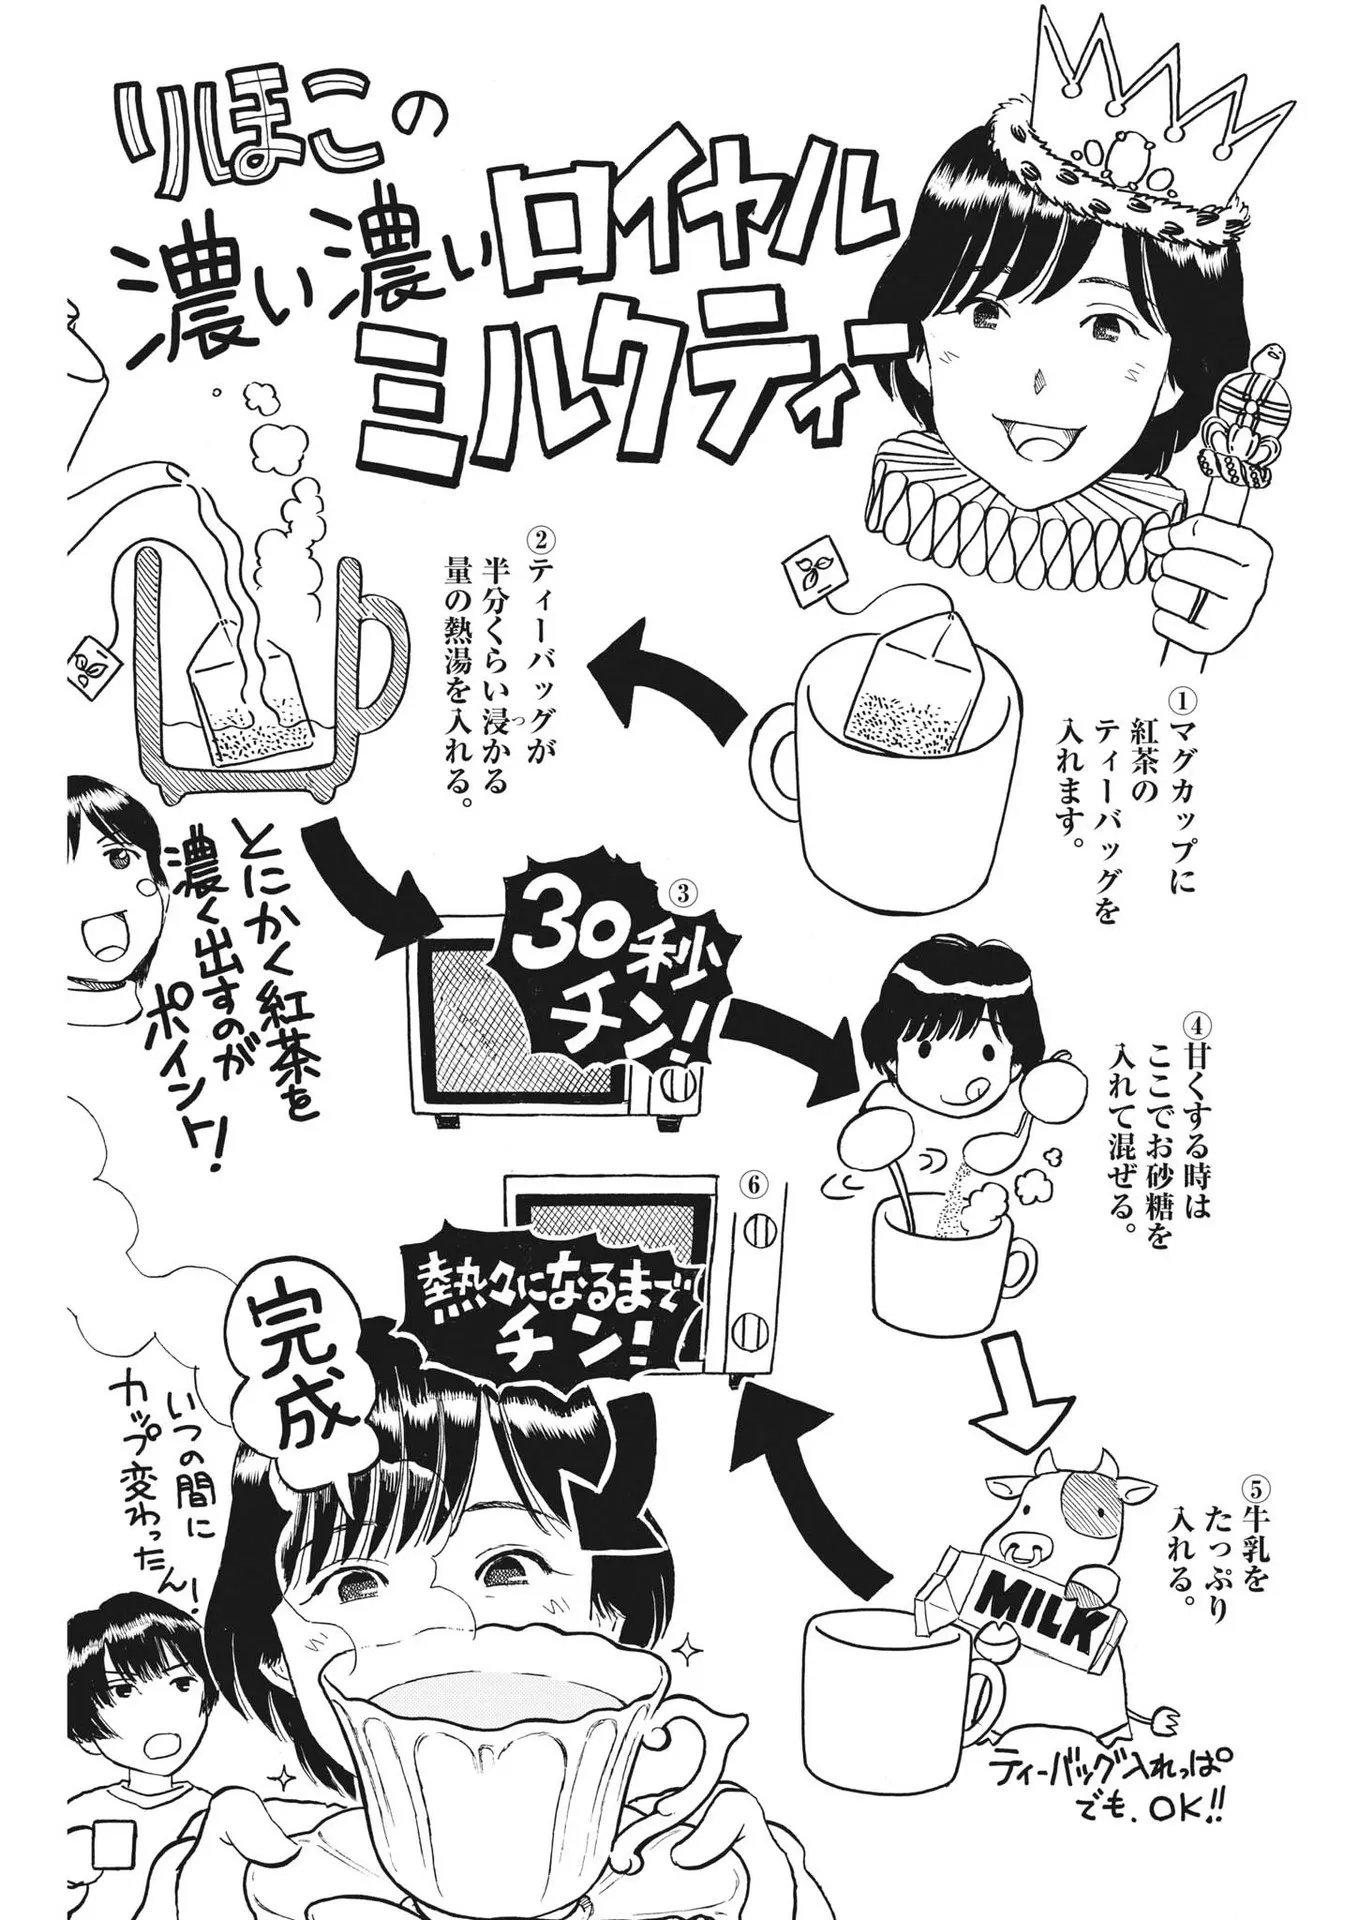 りほこの
濃い濃いロイヤル
ミルクティー
①マグカップに
紅茶の
ティーバッグを
入れます。
②ティーバッグが
半分くらい浸かる
つ
量の熱湯を入れる。
とにかく紅茶を
濃く出すのが
ポイント!
③
30秒
チン!
④甘くする時は
ここでお砂糖を
入れて混ぜる。
⑤牛乳を
たっぷり
入れる。
MILK
ティーバッグ入れっぱ
でも、OK!!
⑥
熱々になるまで
チン!
完成
いつの間に
カップ変わったん!